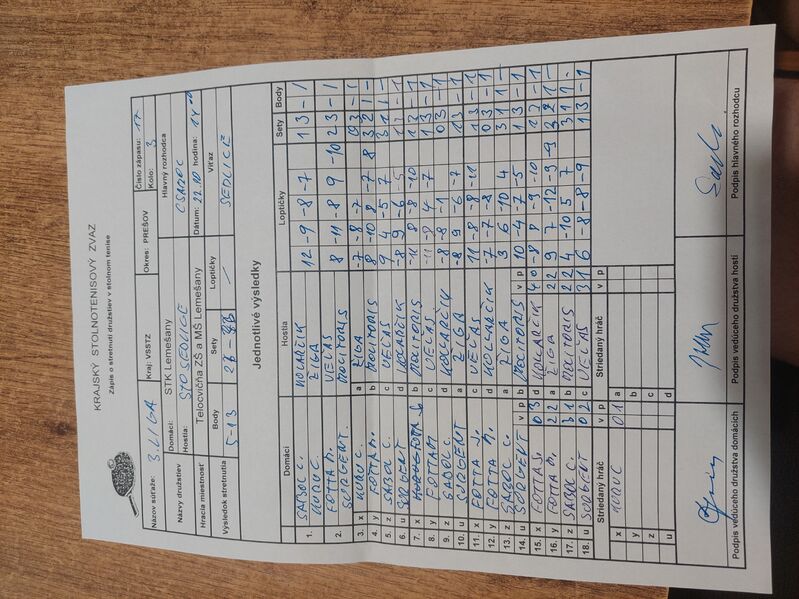 KRAJSKÝ STOLNOTENISOVÝ ZVÄZ
Zápis o stretnutí družstiev v stolnom tenise
Názov súťaže: 3. LIGA Kraj: VSSTZ Okres: PREŠOV Číslo zápasu: 17
Kolo: 3
Názvy družstiev Domáci: STK Lemešany Hlavný rozhodca
Hostia: STO SEDLICE
Hracia miestnosť Telocvičňa ZŠ a MŠ Lemešany Dátum: 22.10 hodina: 14 00
Výsledok stretnutia Body Sety Loptičky Víťaz
5-13 SEDLICE
Jednotlivé výsledky
Domáci Hostia Loptičky Sety Body
1. SABOL C. KOLARČIK 12 -9 -8 -7 1 3 - 1
HURUC. ŽIGA
2. FOTTA M. VEĽAS 8 -11 -8 9 -10 2 3 - 1
SURGENT. MOCITORIS
3. x HURUC a ŽIGA -7 -8 -7 0 3 - 1
4. y FOTTA M. b MOCITORIS 8 -10 8 -7 8 3 2 1 -
5. z SABOL C. c VEĽAS 9 4 -5 7 3 1 1 -
6. u SURGENT d KOLARČIK -8 9 -6 -5 1 3 - 1
7. x b MOCITORIS -11 8 -8 -10 1 3 - 1
8. y FOTTA M c VEĽAS -11 -8 4 -7 1 3 - 1
9. z SABOL C d KOLARČIK -8 -8 -1 0 3 - 1
10. u SURGENT a ŽIGA -8 9 -6 -7 1 3 - 1
11. x FOTTA J. c VEĽAS 11 -8 -8 -11 1 3 - 1
12. y FOTTA M. d KOLARČIK -7 -7 -8 0 3 - 1
13. z SABOL C. a ŽIGA 3 6 -10 4 3 1 1
14. u SURGENT v p b MOCITORIS v p 10 -4 -7 -5 1 3 - 1
15. x FOTTA J. 0 3 d KOLARČIK 4 0 -8 8 -9 -10 1 3 - 1
16. y FOTTA M. 2 2 a ŽIGA 2 2 9 7 -12 -9 -9 2 3 - 1
17. z SABOL C. 3 1 b MOCITORIS 2 2 4 -10 5 7 3 1 1 -
18. u SURGENT 0 2 c VEĽAS 3 1 6 -8 -8 -9 1 3 - 1
Striedaný hráč v p Striedaný hráč v p
x HURUC 0 1 a
y b
z c
u d
Podpis vedúceho družstva domácich Podpis vedúceho družstva hostí Podpis hlavného rozhodcu